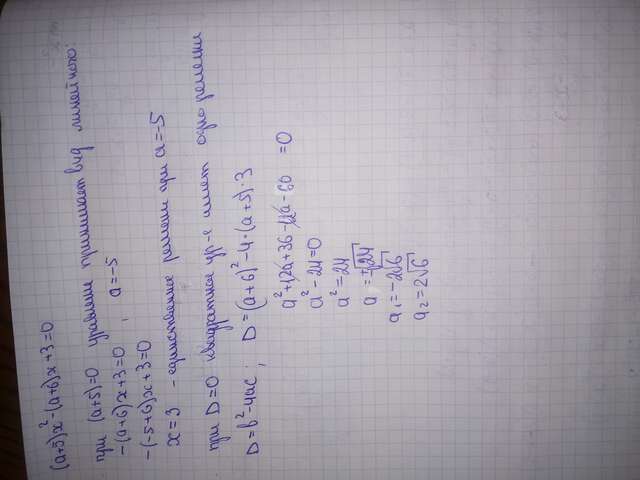 (a+5)x²-(a+6)x+3=0
при (a+5)=0 уравнение принимает вид линейного:
-(a+6)x+3=0 , a=-5
-(-5+6)x+3=0
x=3 - единственное решение при a=-5
при D=0 квадратное ур-е имеет одно решение
D=b²-4ac; D=(a+6)²-4·(a+5)·3
a²+12a+36-12a-60=0
a²-24=0
a²=24
a=±√24
a₁=-2√6
a₂=2√6